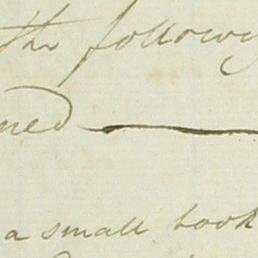 the following
ned
a small book